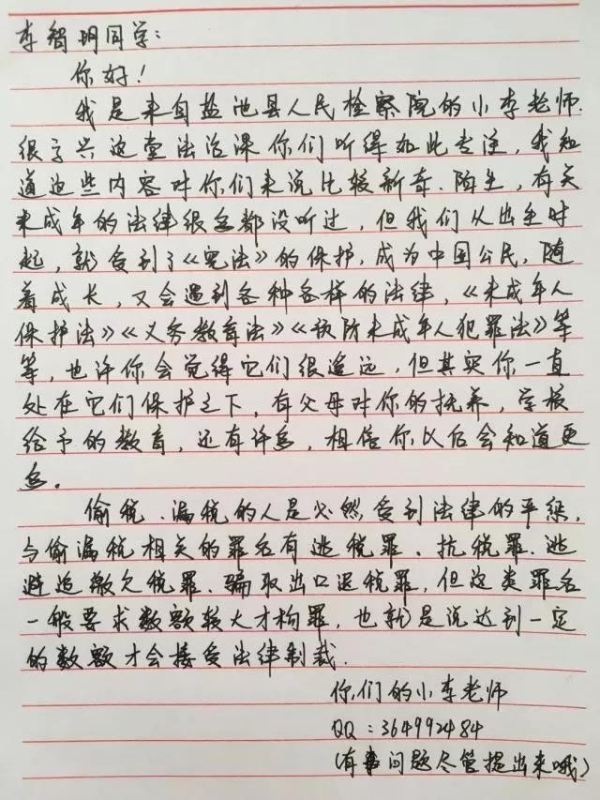 李智明同学：
你好！
我是来自盐池县人民检察院的小李老师.
很高兴这堂法治课你们听得如此专注，我知
道这些内容对你们来说比较新奇、陌生，有关
未成年的法律很多都没听过，但我们从出生时
起，就受到了《宪法》的保护，成为中国公民，随
着成长，又会遇到各种各样的法律，《未成年人
保护法》《义务教育法》《预防未成年人犯罪法》等
等，也许你会觉得它们很遥远，但其实你一直
处在它们保护之下，有父母对你的抚养，学校
给予的教育，还有许多，相信你以后会知道更
多。
偷税、漏税的人是必然受到法律的严惩，
与偷漏税相关的罪名有逃税罪、抗税罪、逃
避追缴欠税罪、骗取出口退税罪，但这类罪名
一般要求数额较大才构罪，也就是说达到一定
的数额才会接受法律制裁.
你们的小李老师
QQ：364992484
(有问题尽管提出来哦)